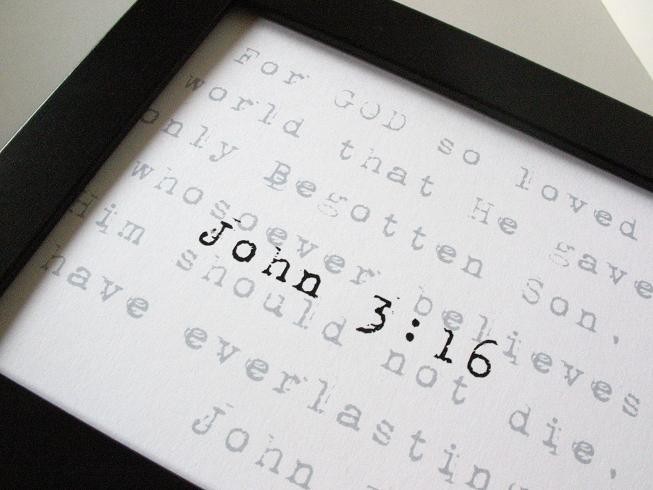 For GOD so loved
world that He gave
only Begotten Son,
whosoever believes
Him should not die,
have everlasting
John
John 3:16